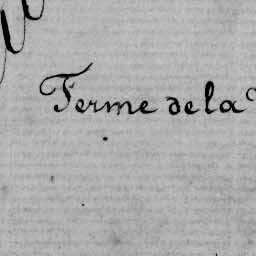 Ferme de la